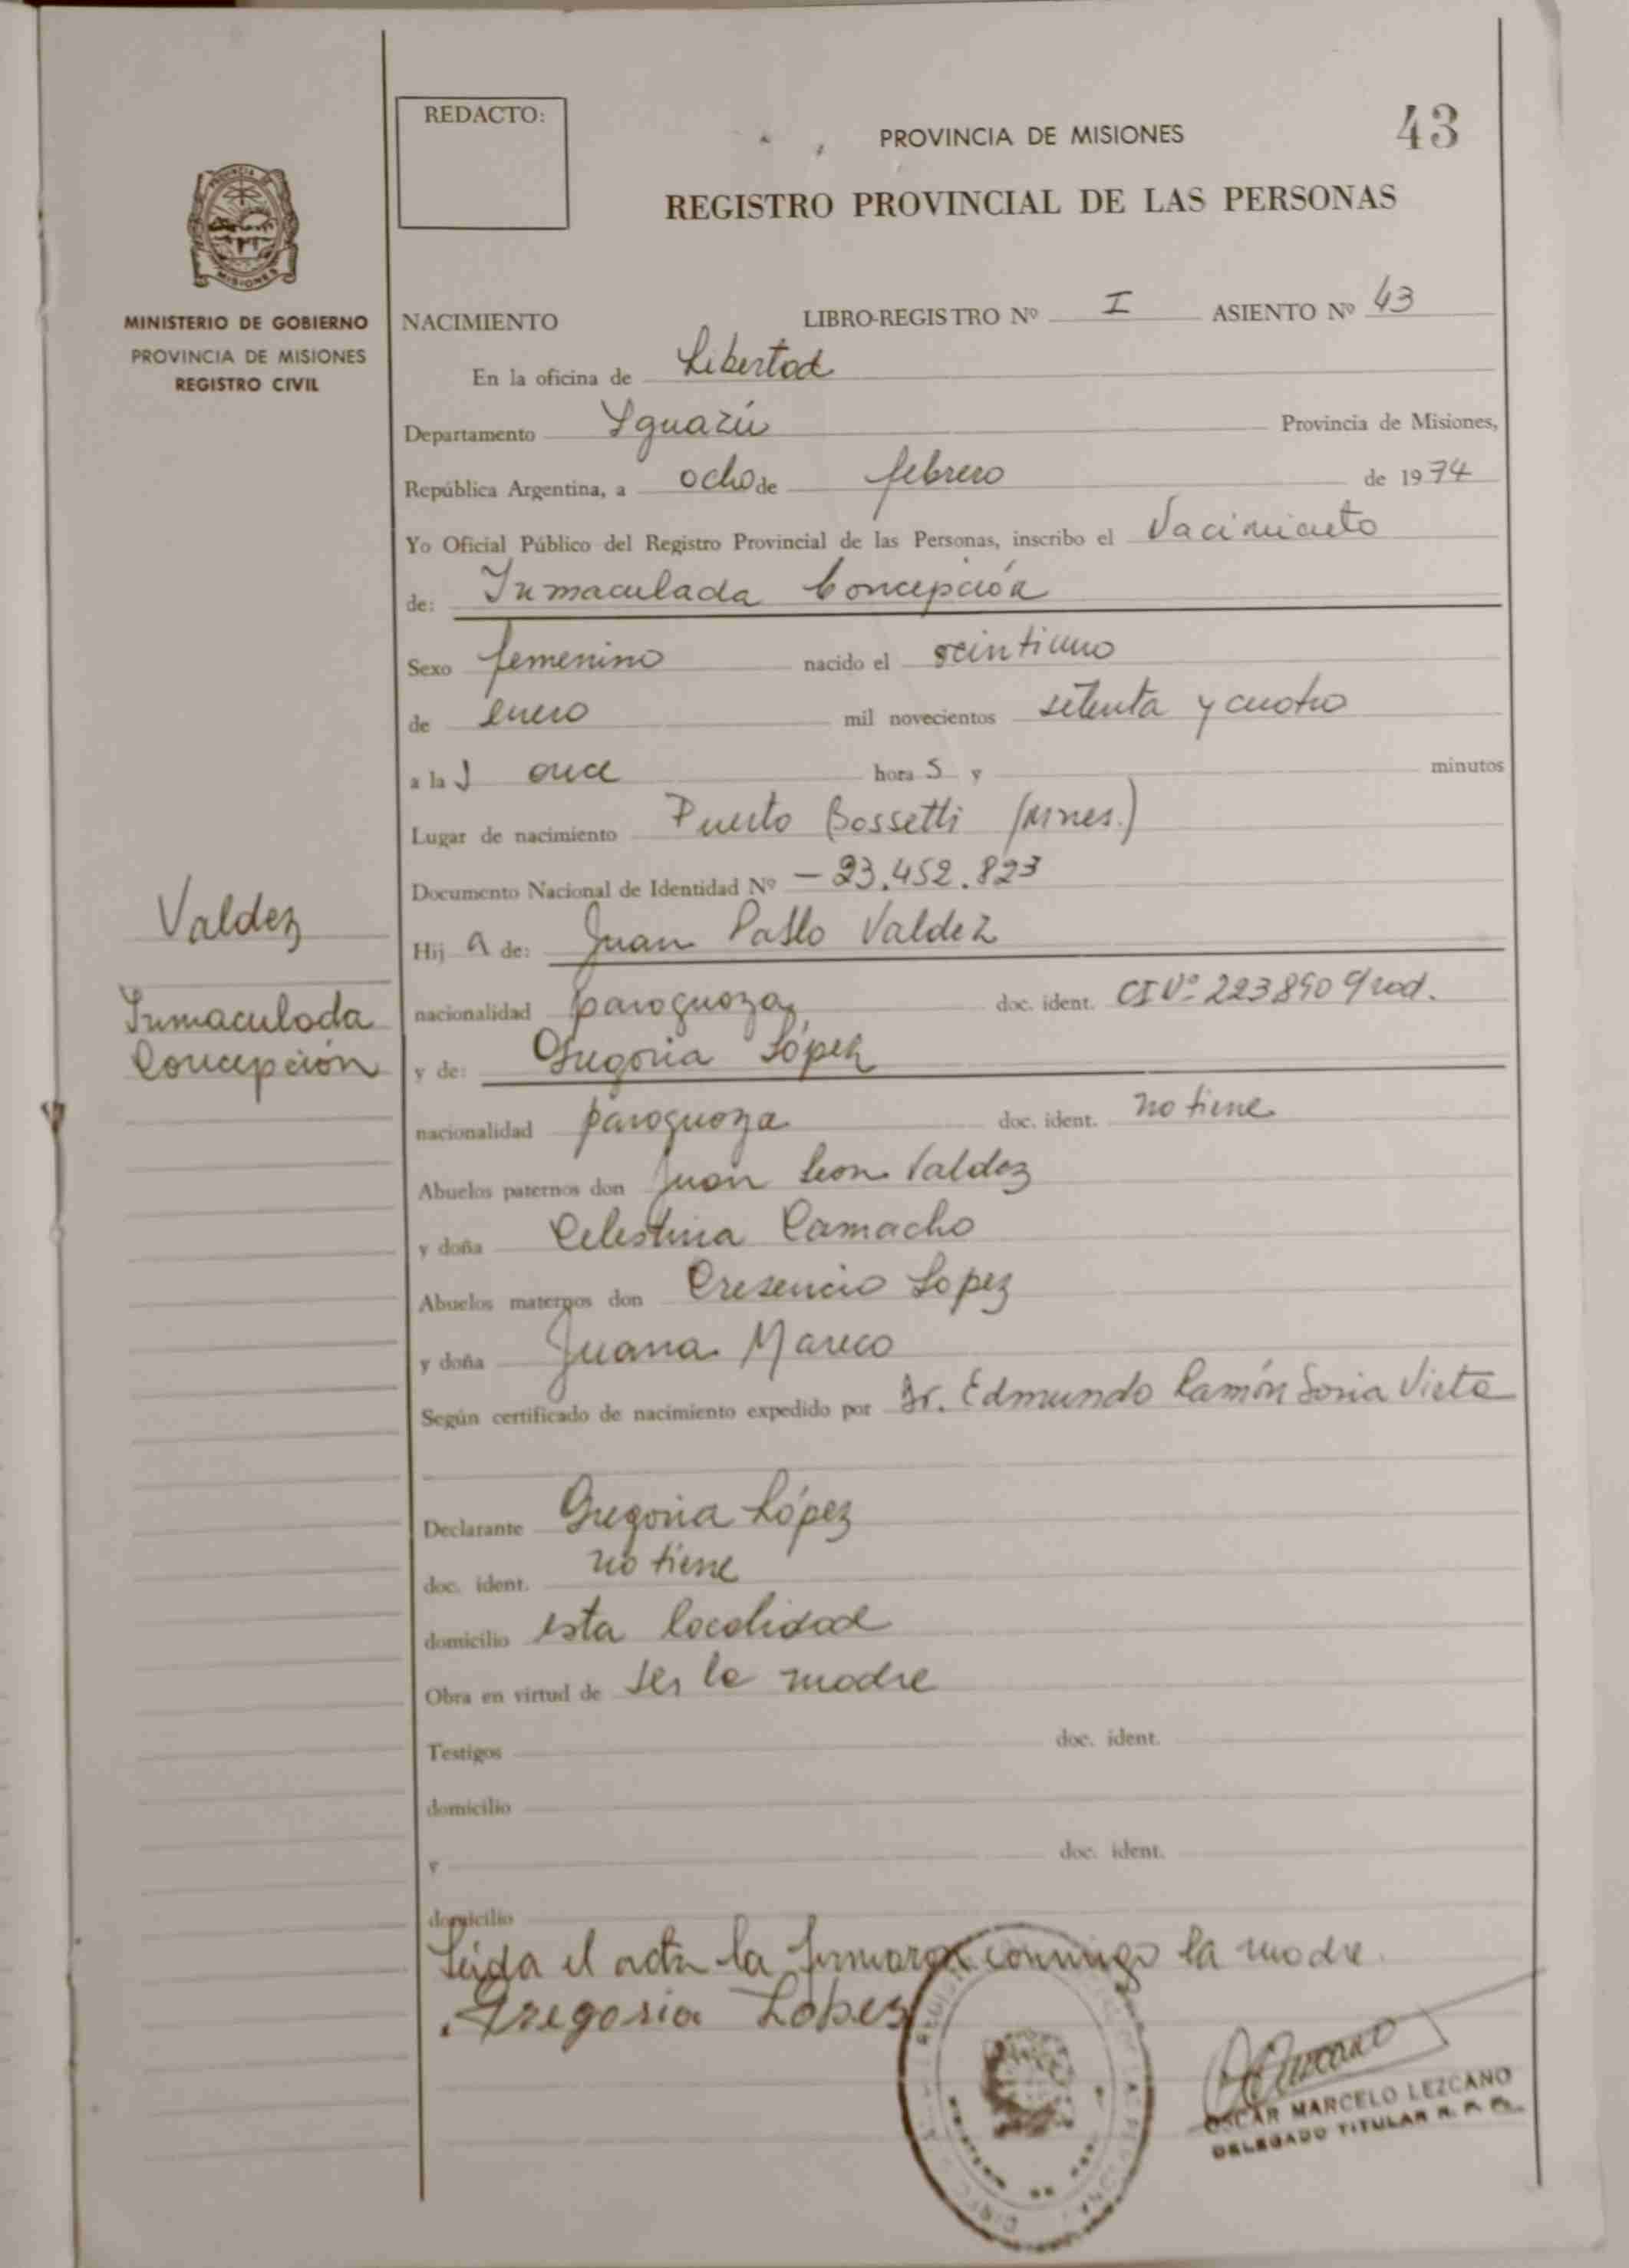 REDACTO:
PROVINCIA DE MISIONES
43
REGISTRO PROVINCIAL DE LAS PERSONAS
MISIONES
MINISTERIO DE GOBIERNO
PROVINCIA DE MISIONES
REGISTRO CIVIL
NACIMIENTO LIBRO-REGISTRO Nº I ASIENTO Nº 43
En la oficina de Libertad
Departamento Yguazú Provincia de Misiones,
República Argentina, a ocho de febrero de 1974
Yo Oficial Público del Registro Provincial de las Personas, inscribo el Nacimiento
de: Inmaculada Concepción
Sexo femenino nacido el veintiuno
de enero mil novecientos setenta y cuatro
a la s once hora s y minutos
Lugar de nacimiento Puerto Bossetti (Mnes.)
Documento Nacional de Identidad Nº - 23.452.823
Valdez
Hij a de: Juan Pablo Valdez
Inmaculada
Concepción
nacionalidad paraguaya doc. ident. CI Nº 223890
y de: Gregoria López
nacionalidad paraguaya doc. ident. no tiene
Abuelos paternos don Juan Leon Valdez
y doña Celestina Camacho
Abuelos maternos don Cresencio Lopez
y doña Juana Mareco
Según certificado de nacimiento expedido por Dr. Edmundo Ramón Soria Vieta
Declarante Gregoria López
doc. ident. no tiene
domicilio esta localidad
Obra en virtud de ser la madre
Testigos doc. ident.
domicilio
y doc. ident.
domicilio
Leida el acta la firmaron conmigo la madre.
Gregoria Lopez
OSCAR MARCELO LEZCANO
DELEGADO TITULAR R. P. P.